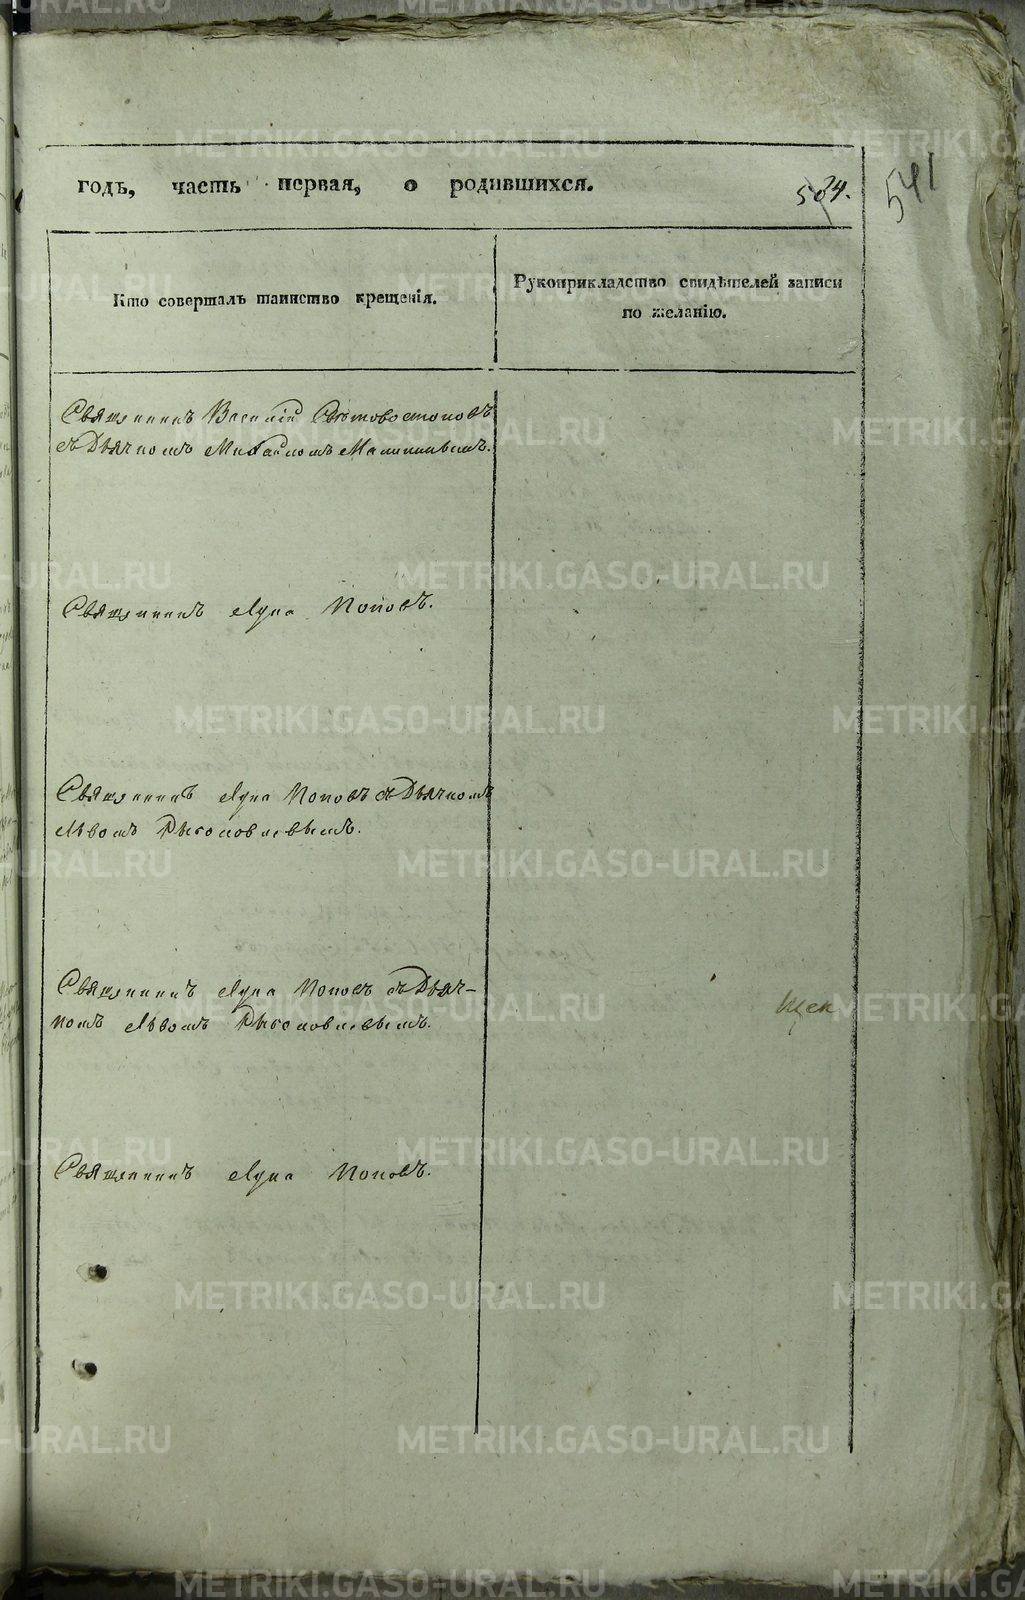 годъ, часть первая, о родившихся.
541
Кто совершалъ таинство крещенія.
Рукоприкладство свидѣтелей записи
по желанію.
Священникъ Василій Свѣтовостоковъ
съ Дьячкомъ Михаиломъ
Священникъ Лука Поповъ.
Священникъ Лука Поповъ съ Дьячкомъ
Львомъ
Священникъ Лука Поповъ съ Дьяч-
комъ Львомъ
Священникъ Лука Поповъ.
METRIKI.GASO-URAL.RU